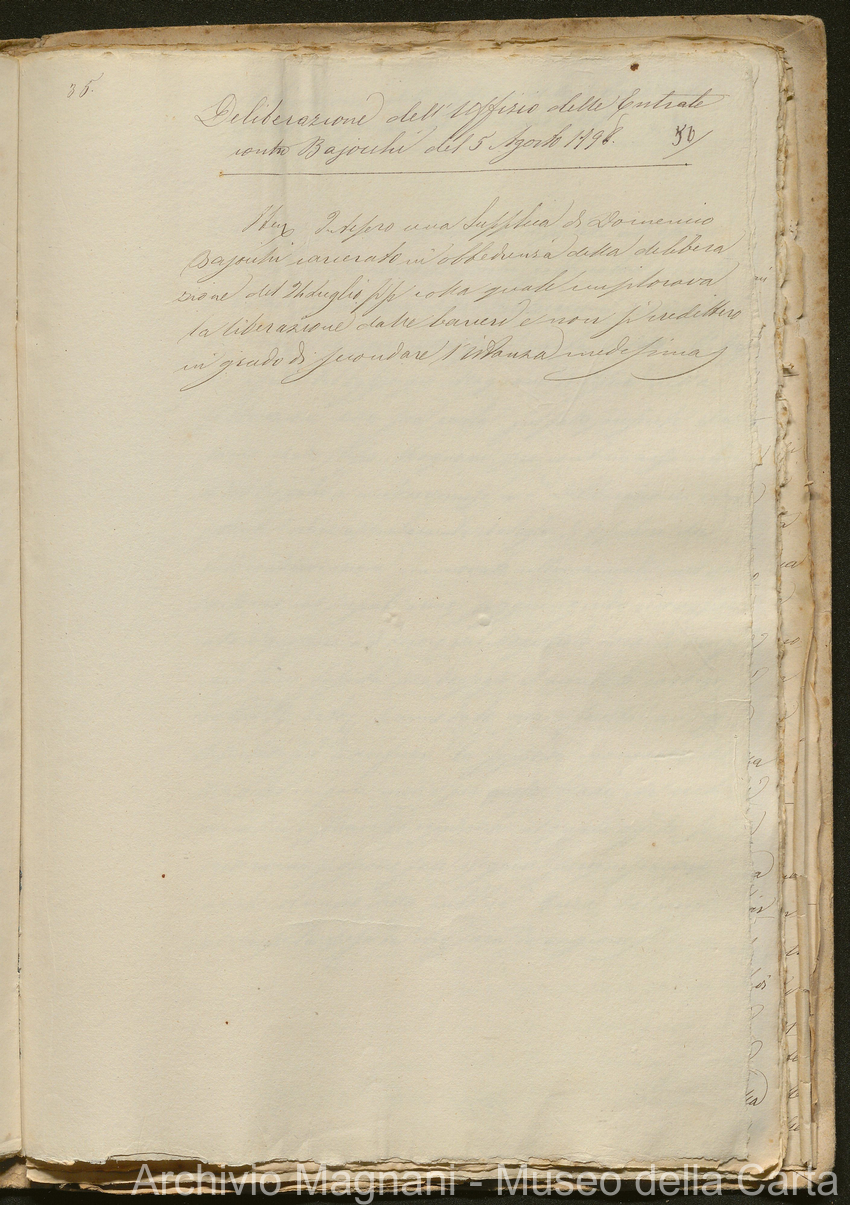 35.
Deliberazione dell'Uffizio delle Entrate
contro Bajocchi del 5 Agosto 1798. 50
una Supplica di Domenico
Bajocchi carcerato in obbedienza della delibera
zione del 24 Luglio pp colla quale implorava
la liberazione dalle carceri e non si credettero
in grado di secondare l'istanza medesima
Archivio Magnani - Museo della Carta